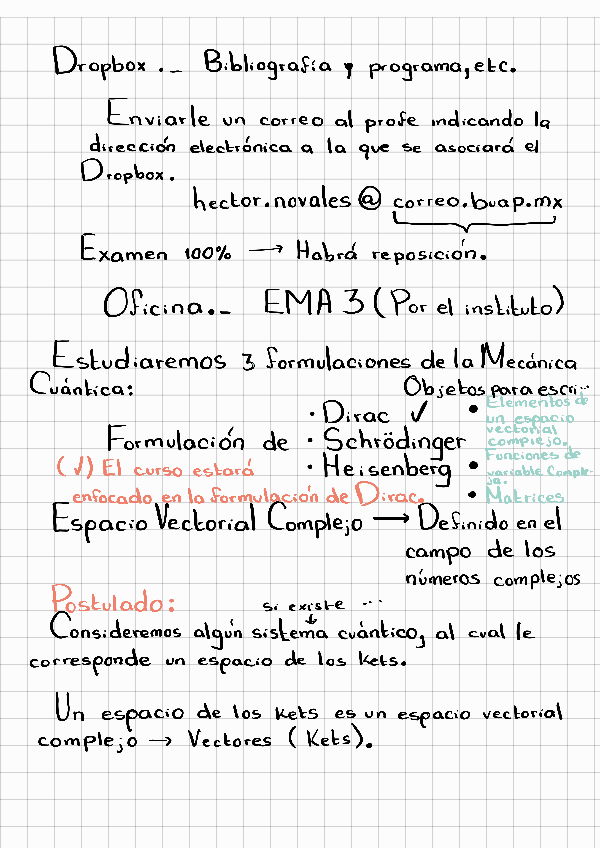 Dropbox ._ Bibliografía y programa, etc.
Enviarle un correo al profe indicando la
dirección electrónica a la que se asociará el
Dropbox.
hector.novales @ correo.buap.mx
Examen 100% → Habrá reposición.
Oficina._ EMA 3 (Por el instituto)
Estudiaremos 3 formulaciones de la Mecánica
Cuántica:
Objetos para escri...
· Dirac ✓
• Elementos de
un espacio
vectorial
complejo.
Formulación de · Schrödinger
• Funciones de
variable Comple-
ja.
(✓) El curso estará
· Heisenberg
• Matrices
enfocado en la formulación de Dirac.
Espacio Vectorial Complejo → Definido en el
campo de los
números complejos
Postulado:
si existe ...
Consideremos algún sistema cuántico, al cual le
corresponde un espacio de los kets.
Un espacio de los kets es un espacio vectorial
complejo → Vectores (Kets).